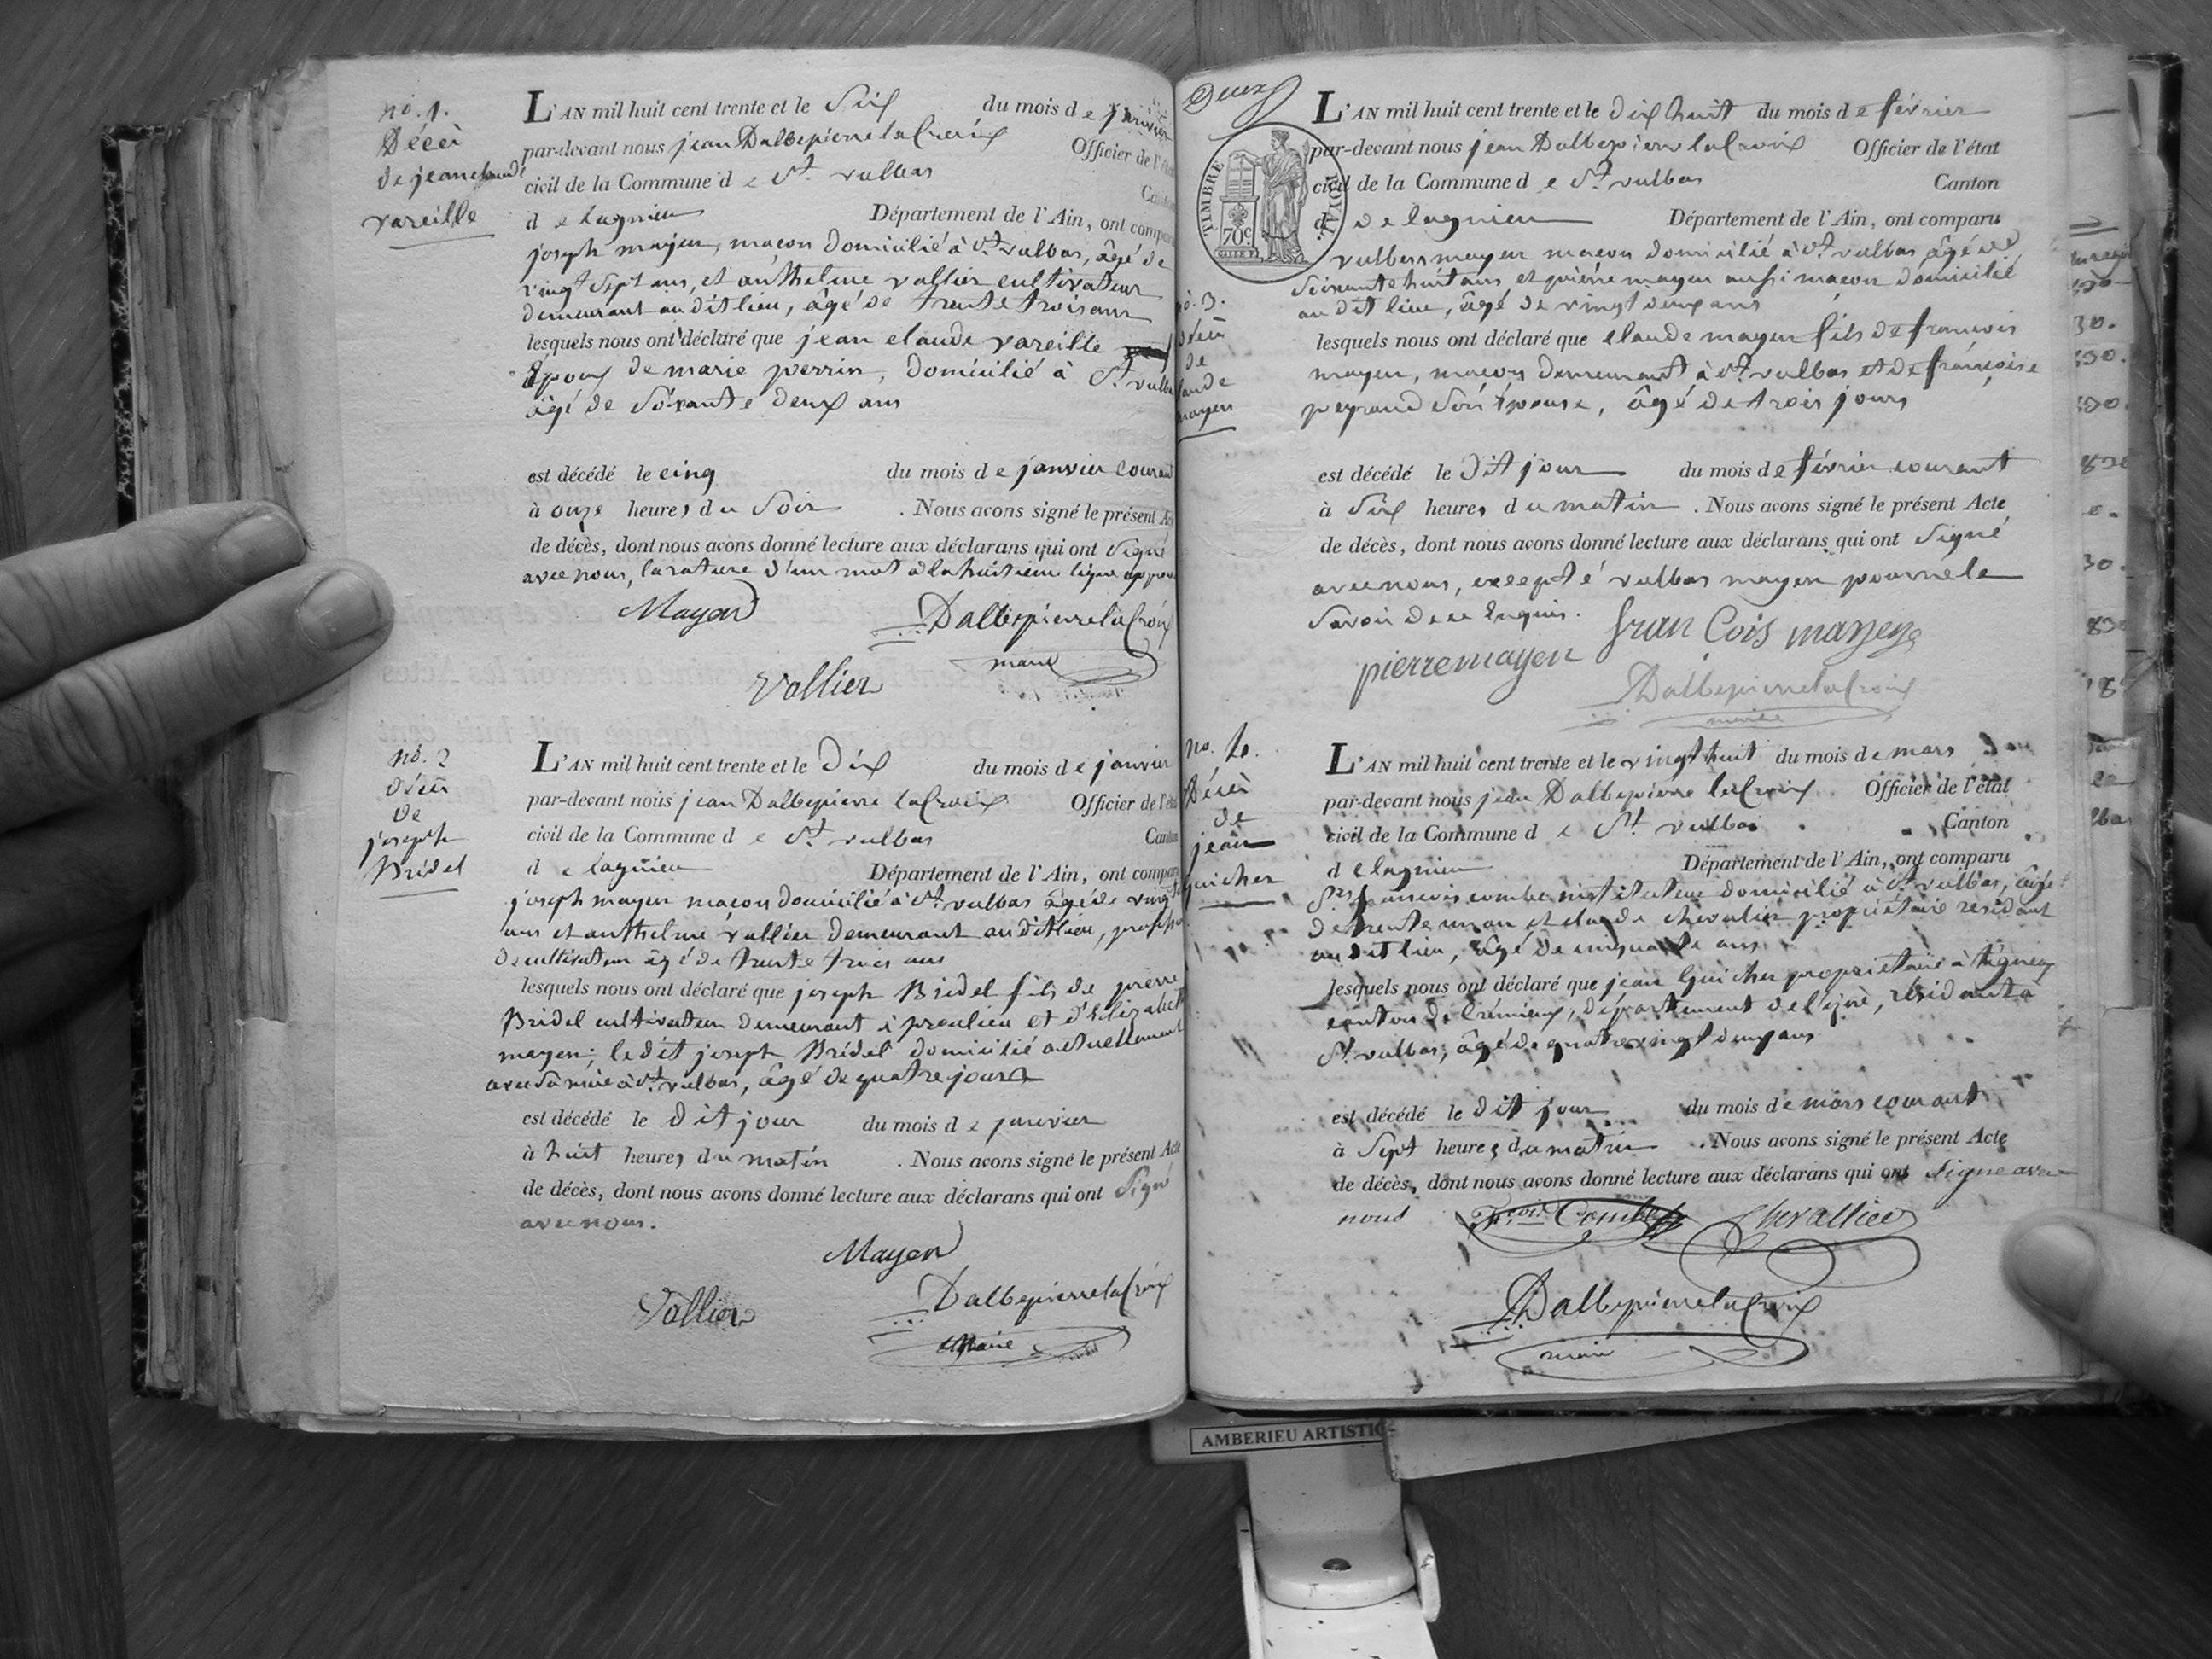 no. 1.
Décès
de jean claude
vareille
L'AN mil huit cent trente et le Six du mois de janvier
par-devant nous jean Dalbepierre lacroix Officier de l'état
civil de la Commune de St. vulbas Canton
de lagnieu Département de l'Ain, ont comparu
joseph mayen, maçon domicilié à St. vulbas, âgé de
vingt Sept ans, et anthelme vallier cultivateur
demeurant au dit lieu, âgé de trente trois ans
lesquels nous ont déclaré que jean claude vareille
Epoux de marie perrin, domicilié à St. vulbas
âgé de Soixante deux ans
est décédé le cinq du mois de janvier courant
à onze heures du Soir . Nous avons signé le présent Acte
de décès, dont nous avons donné lecture aux déclarans qui ont Signé
avec nous, la rature d'un mot à la huitieme ligne approu
Mayen
Dalbepierrelacroix
maire
Vallier
no. 2
décès
de
joseph
Bridel
L'AN mil huit cent trente et le Dix du mois de janvier
par-devant nous jean Dalbepierre lacroix Officier de l'état
civil de la Commune de St. vulbas Canton
de lagnieu Département de l'Ain, ont comparu
joseph mayen maçon domicilié à St. vulbas âgé de vingt
ans et anthelme vallier demeurant au dit lieu, profession
de cultivateur âgé de trente trois ans
lesquels nous ont déclaré que joseph Bridel fils de pierre
Bridel cultivateur demeurant à proulieu et d'Elizabeth
mayen; le dit joseph Bridel domicilié actuellement
avec Sa mère à St. vulbas, âgé de quatre jours
est décédé le dit jour du mois de janvier
à huit heures du matin . Nous avons signé le présent Acte
de décès, dont nous avons donné lecture aux déclarans qui ont Signé
avec nous.
Mayen
Dalbepierrelacroix
Vallier
Maire
Deux
TIMBRE ROYAL
70c
no. 3.
décès
de
claude
mayen
L'AN mil huit cent trente et le dix huit du mois de février
par-devant nous jean Dalbepierre lacroix Officier de l'état
civil de la Commune de St. vulbas Canton
de lagnieu Département de l'Ain, ont comparu
vulbas mayen maçon domicilié à St. vulbas âgé de
Soixante huit ans, et pierre mayen aussi maçon domicilié
au dit lieu, âgé de vingt deux ans
lesquels nous ont déclaré que claude mayen fils de françois
mayen, maçon demeurant à St. vulbas et de françoise
peyraud Son épouse, âgé de trois jours
est décédé le dit jour du mois de février courant
à Six heures du matin . Nous avons signé le présent Acte
de décès, dont nous avons donné lecture aux déclarans qui ont Signé
avec nous, excepté vulbas mayen pour ne le
Savoir de ce Enquis.
fran Cois mayen
pierre mayen
Dalbepierrelacroix
maire
no. 4.
Décès
de
jean
guicher
L'AN mil huit cent trente et le vingt huit du mois de mars
par-devant nous jean Dalbepierre lacroix Officier de l'état
civil de la Commune de St. vulbas Canton
de lagnieu Département de l'Ain, ont comparu
françois combe instituteur domicilié à St. vulbas, âgé
de trente un an, et claude chevalier propriétaire résidant
au dit lieu, âgé de cinquante ans
lesquels nous ont déclaré que jean Guicher propriétaire à tignieu
canton de Crémieux, département de l'izère, résidant à
St. vulbas, âgé de quatre vingt deux ans
est décédé le dit jour du mois de mars courant
à Sept heures du matin . Nous avons signé le présent Acte
de décès, dont nous avons donné lecture aux déclarans qui ont Signé avec
nous
Fçois Combe
Chevallier
Dalbepierrelacroix
maire
AMBERIEU ARTISTIC